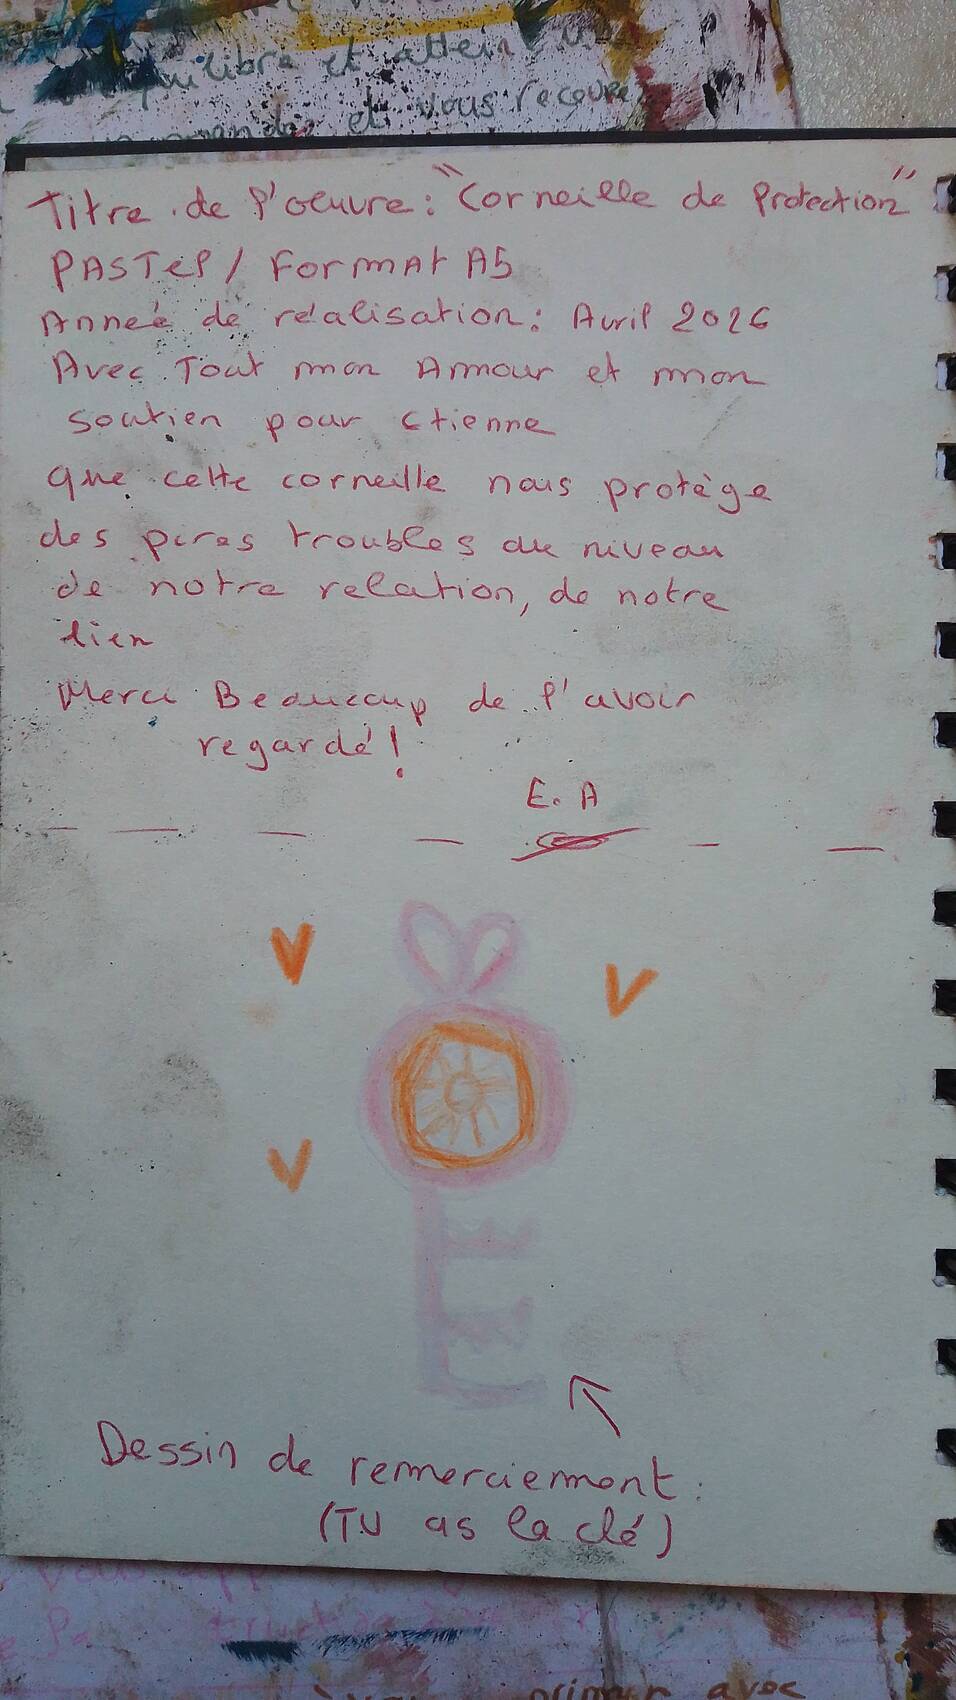 quilibre et attein
et vous recevre
Titre de l'oeuvre: "Corneille de Protection"
PASTEl / FormAt A5
Année de réalisation: Avril 2026
Avec Tout mon Amour et mon
soutien pour Etienne
que cette corneille nous protège
des pires troubles au niveau
de notre relation, de notre
lien
Merci Beaucoup de l'avoir
regardé!
E. A
Dessin de remerciement
(TU as la clé)